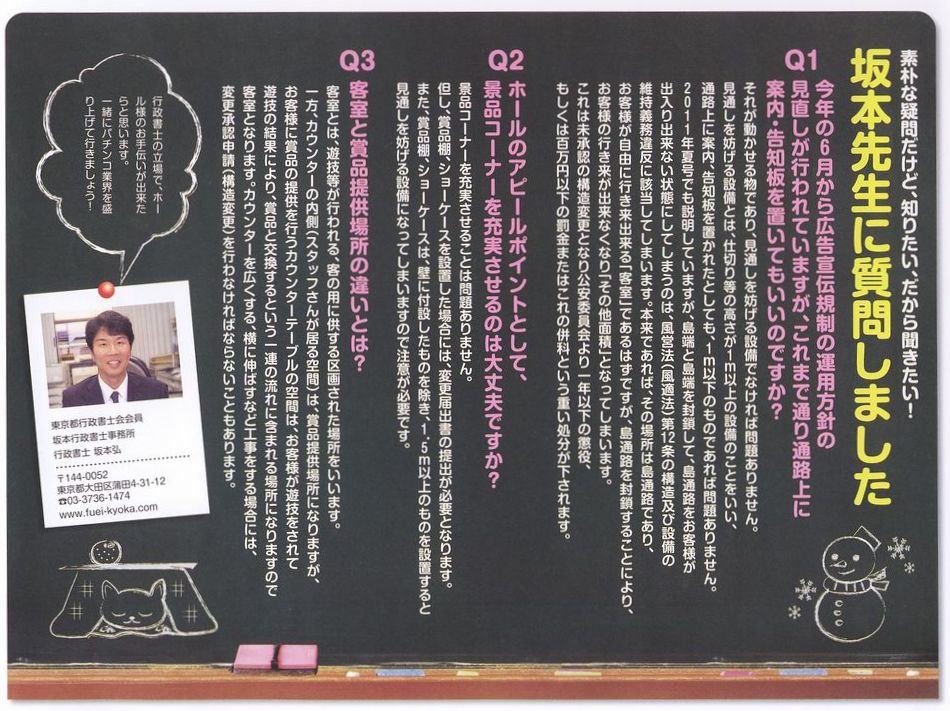 素朴な疑問だけど、知りたい、だから聞きたい！
坂本先生に質問しました
Q1
今年の6月から広告宣伝規制の運用方針の
見直しが行われていますが、これまで通り通路上に
案内・告知板を置いてもいいのですか？
それが動かせる物であり、見通しを妨げる設備でなければ問題ありません。
見通しを妨げる設備とは、仕切り等の高さが1m以上の設備のことをいい、
通路上に案内、告知板を置かれたとしても、1m以下のものであれば問題ありません。
2011年夏号でも説明していますが、島端と島端を封鎖して、島通路をお客様が
出入り出来ない状態にしてしまうのは、風営法（風適法）第12条の構造及び設備の
維持義務違反に該当してしまいます。本来であれば、その場所は島通路であり、
お客様が自由に行き来出来る「客室」であるはずですが、島通路を封鎖することにより、
お客様の行き来が出来なくなり「その他面積」となってしまいます。
これは未承認の構造変更となり公安委員会より一年以下の懲役、
もしくは百万円以下の罰金またはこれの併科という重い処分が下されます。
Q2
ホールのアピールポイントとして、
景品コーナーを充実させるのは大丈夫ですか？
景品コーナーを充実させることは問題ありません。
但し、賞品棚、ショーケースを設置した場合には、変更届出書の提出が必要となります。
また、賞品棚、ショーケースは、壁に付設したものを除き、1.5m以上のものを設置すると
見通しを妨げる設備になってしまいますので注意が必要です。
Q3
客室と賞品提供場所の違いとは？
客室とは、遊技等が行われる、客の用に供する区画された場所をいいます。
一方、カウンターの内側（スタッフさんが居る空間）は、賞品提供場所になりますが、
お客様に賞品の提供を行うカウンターテーブルの空間は、お客様が遊技をされて
遊技の結果により、賞品と交換するという一連の流れに含まれる場所になりますので
客室となります。カウンターを広くする、横に伸ばすなど工事をする場合には、
変更承認申請（構造変更）を行わなければならないこともあります。
行政書士の立場で、ホー
ル様のお手伝いが出来た
らと思います。
一緒にパチンコ業界を盛
り上げて行きましょう！
東京都行政書士会会員
坂本行政書士事務所
行政書士 坂本弘
〒144-0052
東京都大田区蒲田4-31-12
☎03-3736-1474
www.fuei-kyoka.com